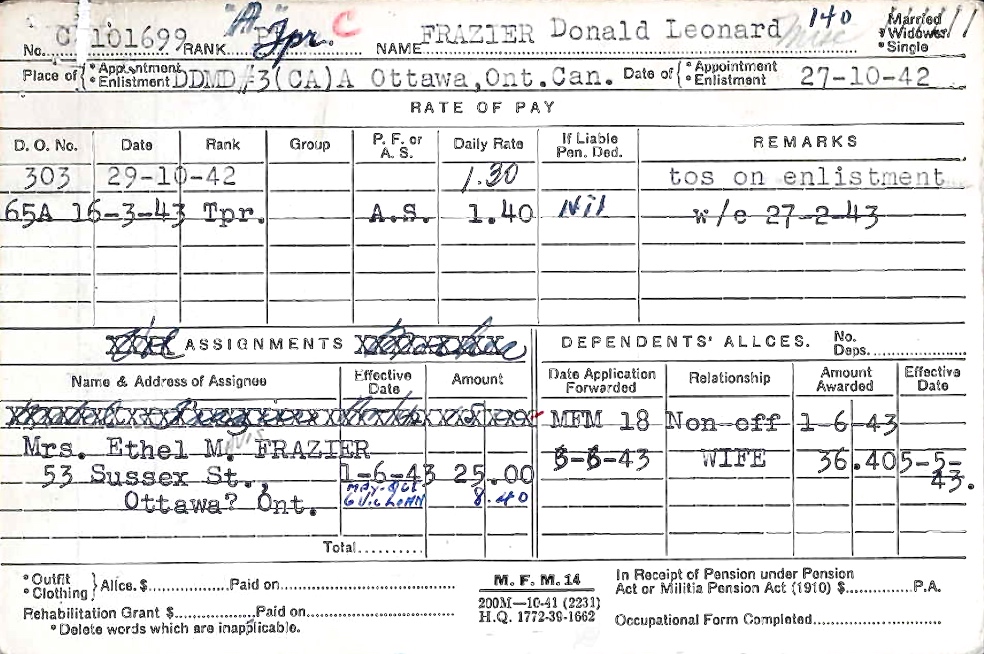 "A" C 140
No. C 101699 RANK Tpr. NAME FRAZIER Donald Leonard Misc *Married *Widower *Single
Place of { *Appointment *Enlistment DDMD #3(CA)A Ottawa,Ont.Can. Date of { *Appointment *Enlistment 27-10-42
RATE OF PAY
D. O. No. Date Rank Group P. F. or A. S. Daily Rate If Liable Pen. Ded. REMARKS
303 29-10-42 1.30 tos on enlistment
65A 16-3-43 Tpr. A.S. 1.40 Nil w/e 27-2-43
ASSIGNMENTS DEPENDENTS' ALLCES. No. Deps.
Name & Address of Assignee Effective Date Amount Date Application Forwarded Relationship Amount Awarded Effective Date
MFM 18 Non-eff 1-6-43
Mrs. Ethel M. FRAZIER
WIFE 36.40 5-5-43.
53 Sussex St., 1-6-43 25.00
Ottawa? Ont. 8.40
Total
*Outfit *Clothing } Allce. $ Paid on M. F. M. 14 In Receipt of Pension under Pension Act or Militia Pension Act (1910) $ P.A.
Rehabilitation Grant $ Paid on 200M—10-41 (2231)
H.Q. 1772-39-1662 Occupational Form Completed
*Delete words which are inapplicable.